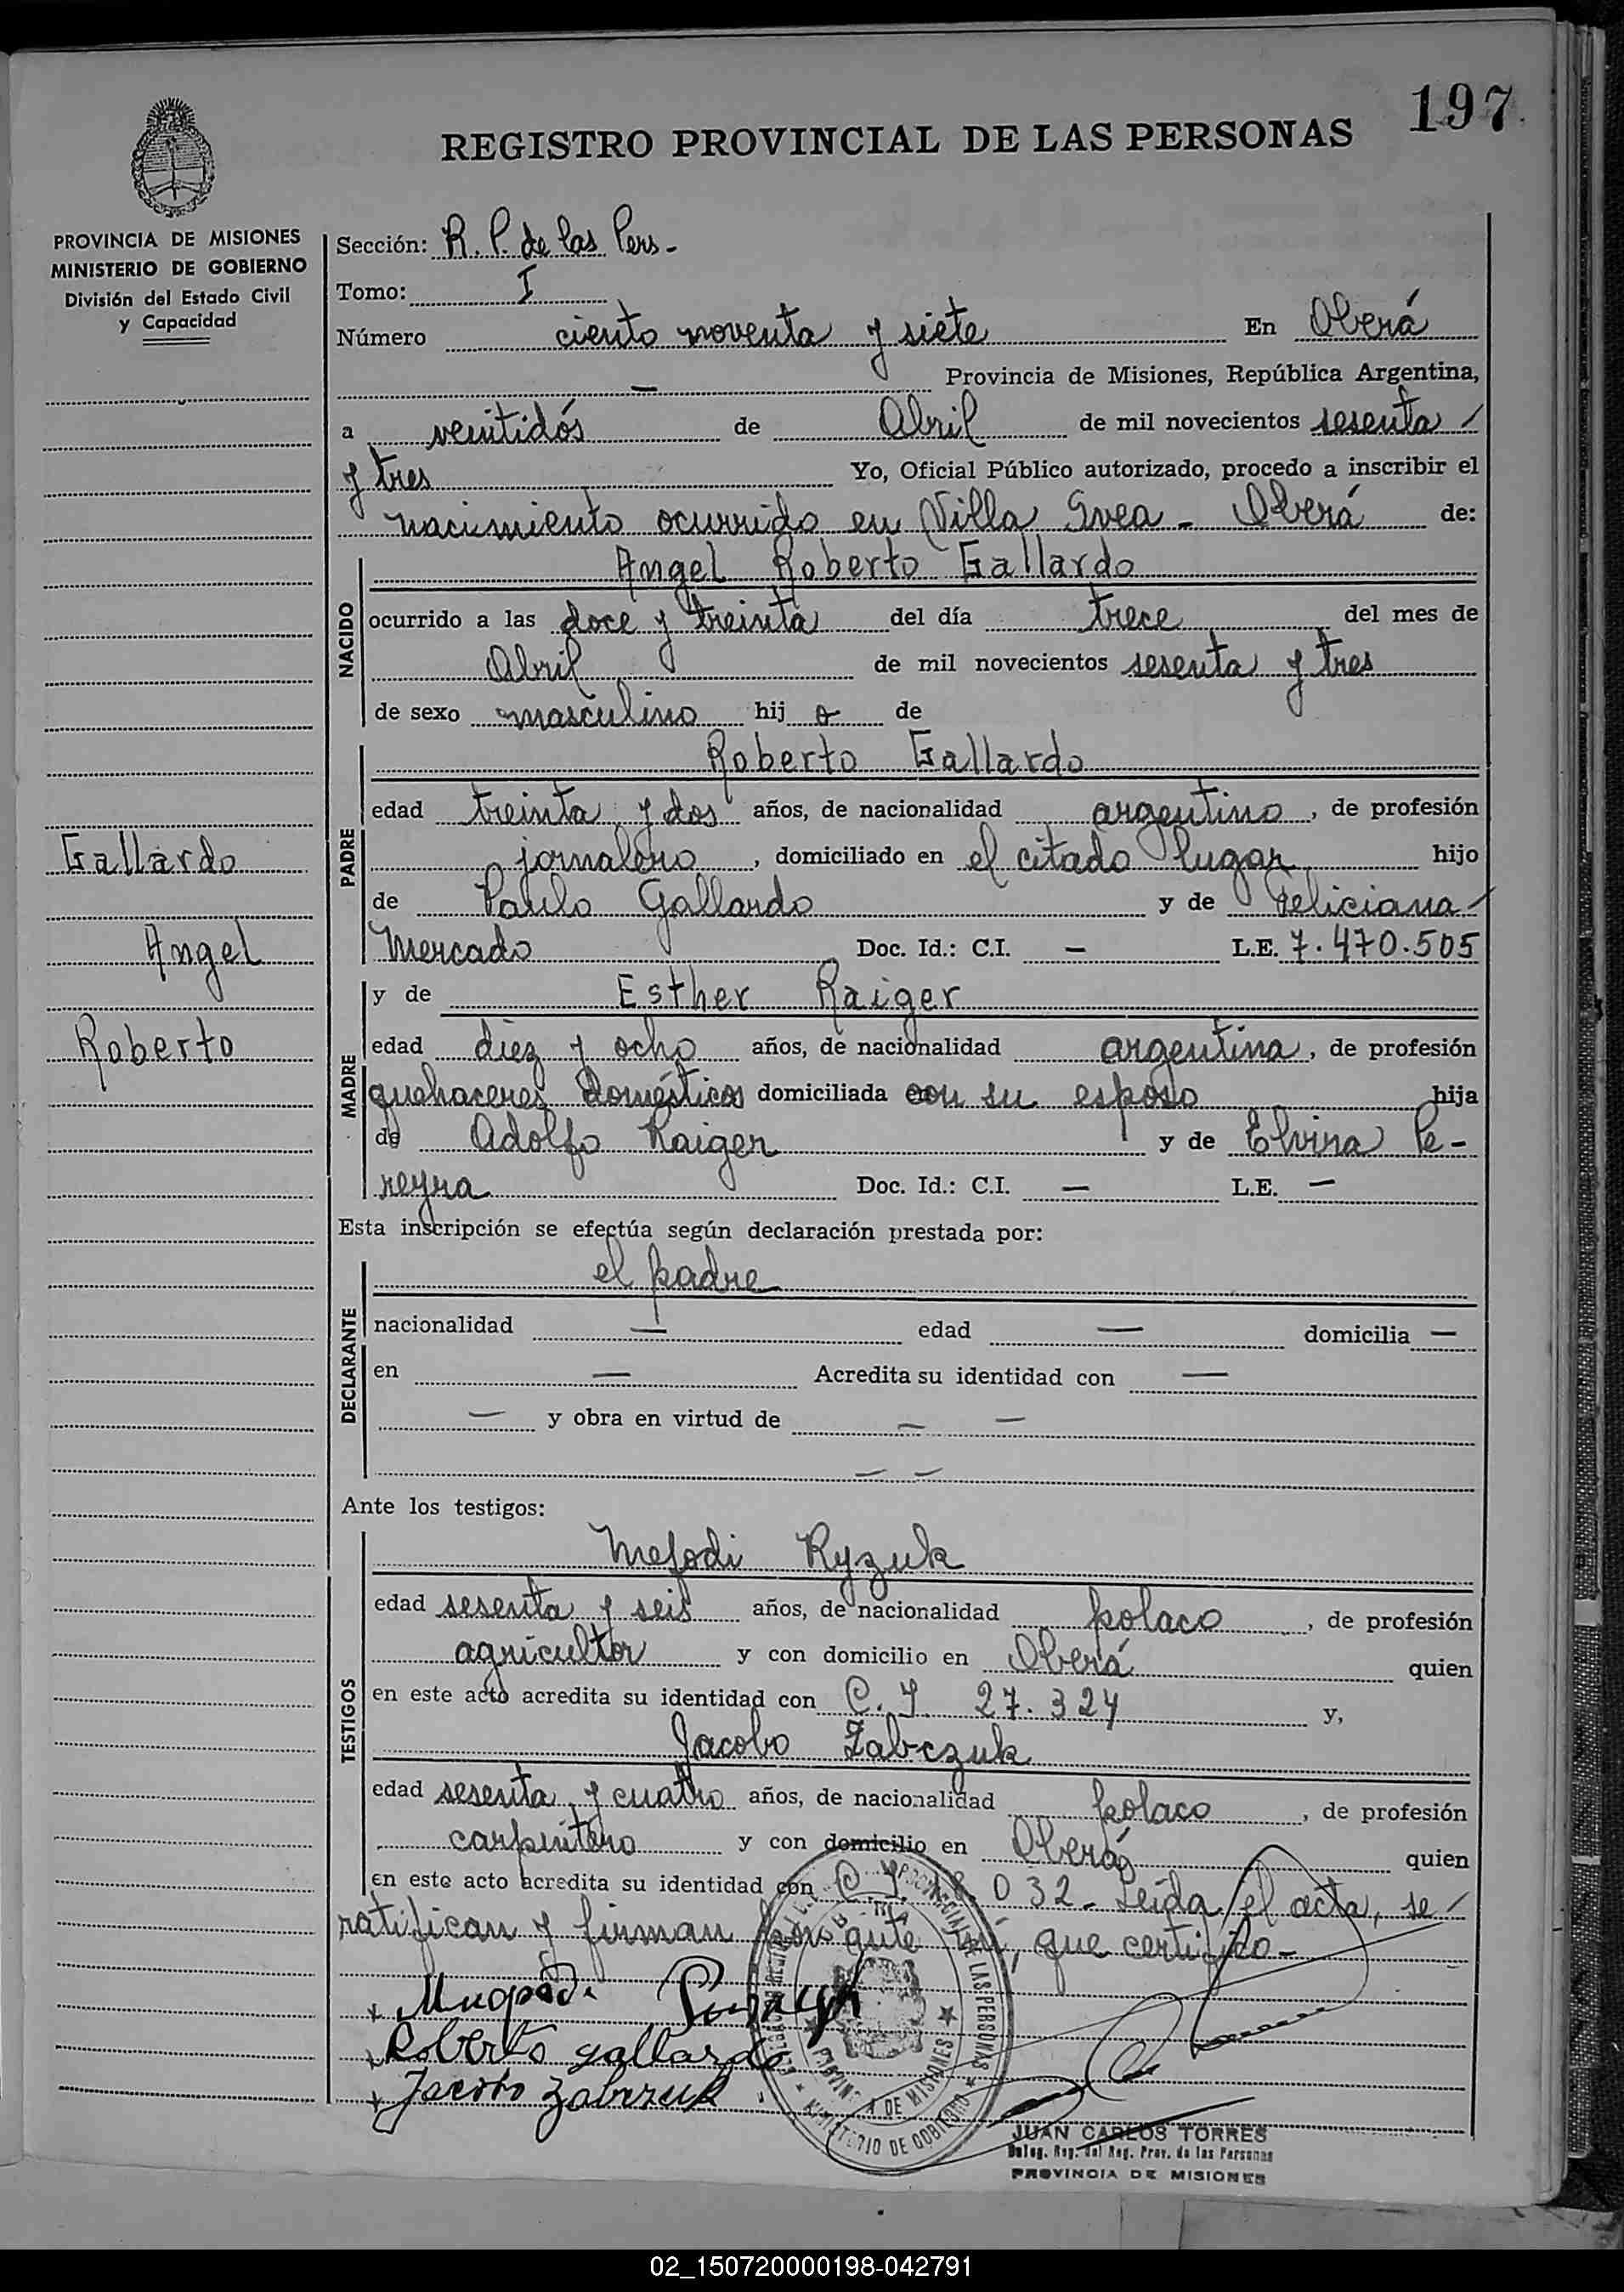 197
REGISTRO PROVINCIAL DE LAS PERSONAS
PROVINCIA DE MISIONES
MINISTERIO DE GOBIERNO
División del Estado Civil
y Capacidad
Gallardo
Angel
Roberto
Sección: R. P. de las Pers-
Tomo: I
Número ciento noventa y siete En Oberá
— Provincia de Misiones, República Argentina,
a veintidós de Abril de mil novecientos sesenta /
y tres Yo, Oficial Público autorizado, procedo a inscribir el
nacimiento ocurrido en Villa Svea - Oberá de:
NACIDO
Angel Roberto Gallardo
ocurrido a las doce y treinta del día trece del mes de
Abril de mil novecientos sesenta y tres
de sexo masculino hij o de
PADRE
Roberto Gallardo
edad treinta y dos años, de nacionalidad argentino, de profesión
jornalero, domiciliado en el citado lugar hijo
de Paulo Gallardo y de Feliciana /
Mercado Doc. Id.: C.I. — L.E. 7.470.505
MADRE
y de Esther Raiger
edad diez y ocho años, de nacionalidad argentina, de profesión
quehaceres domésticos domiciliada con su esposo hija
de Adolfo Raiger y de Elvira Pe-
reyra Doc. Id.: C.I. — L.E. —
Esta inscripción se efectúa según declaración prestada por:
DECLARANTE
el padre
nacionalidad — edad — domicilia —
en — Acredita su identidad con —
— y obra en virtud de — —
— —
Ante los testigos:
TESTIGOS
Mefodi Ryzuk
edad sesenta y seis años, de nacionalidad polaco, de profesión
agricultor y con domicilio en Oberá quien
en este acto acredita su identidad con C. I. 27.324 y,
Jacobo Zabczuk
edad sesenta y cuatro años, de nacionalidad polaco, de profesión
carpintero y con domicilio en Oberá quien
en este acto acredita su identidad con C. I. 032- Leída el acta, se /
ratifican y firman por ante mí, que certifico-
Roberto gallardo
Jacobo Zabczuk
PROVINCIAL DE LAS PERSONAS
PROVINCIA DE MISIONES
MINISTERIO DE GOBIERNO
JUAN CARLOS TORRES
Deleg. Reg. del Reg. Prov. de las Personas
PROVINCIA DE MISIONES
02_150720000198-042791